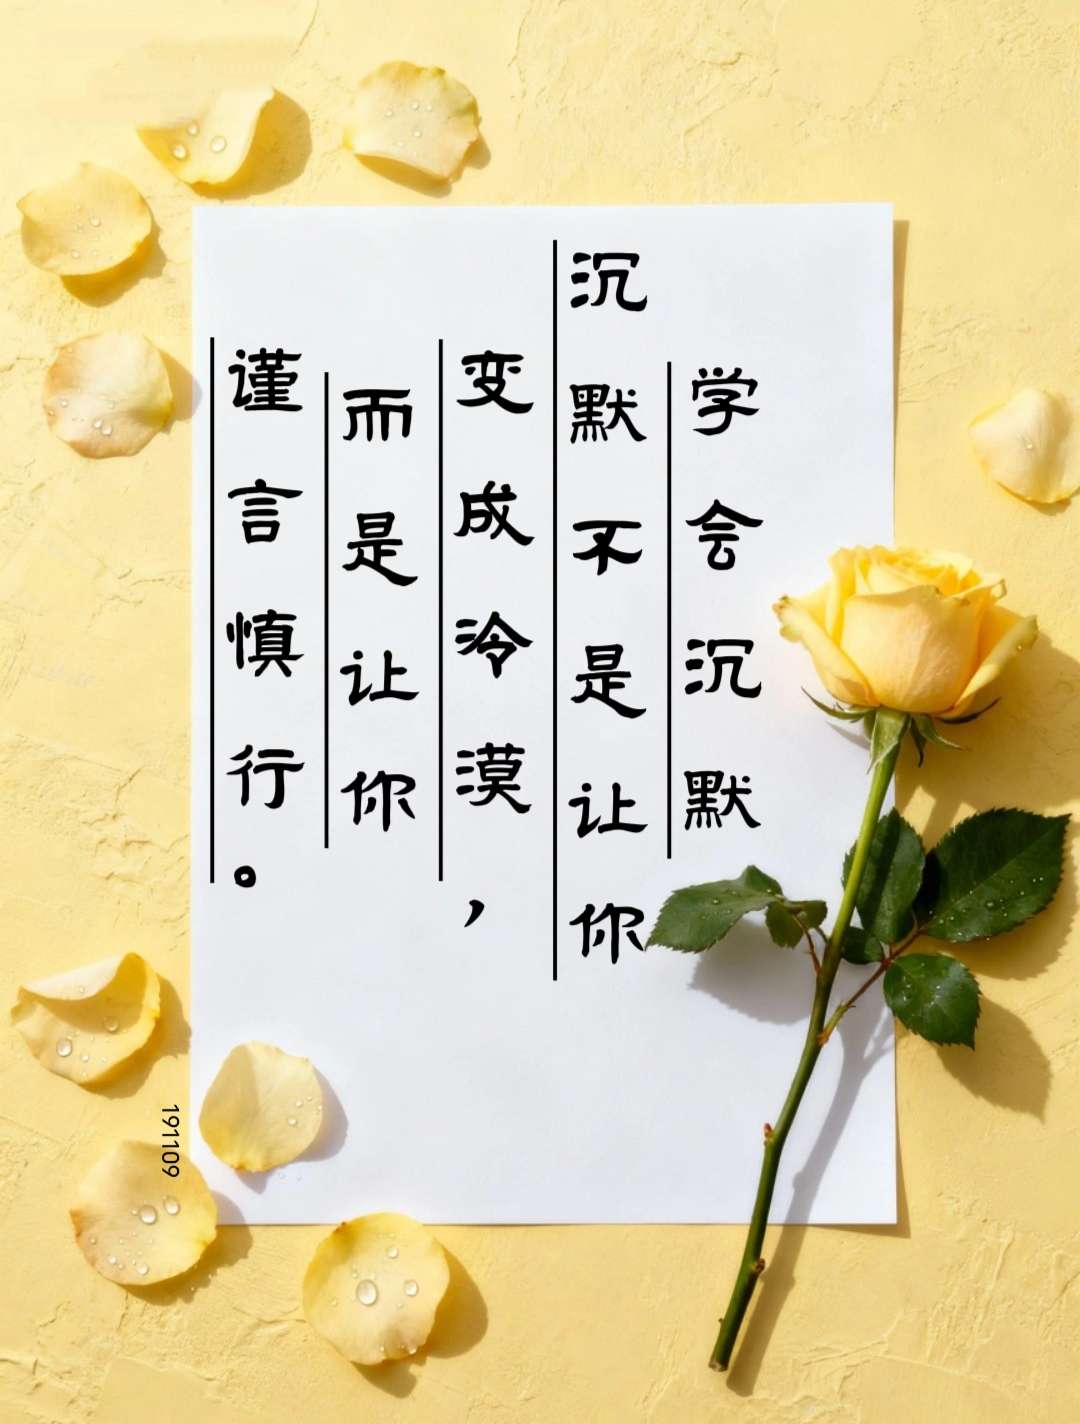 学会沉默
沉默不是让你
变成冷漠，
而是让你
谨言慎行。
191109